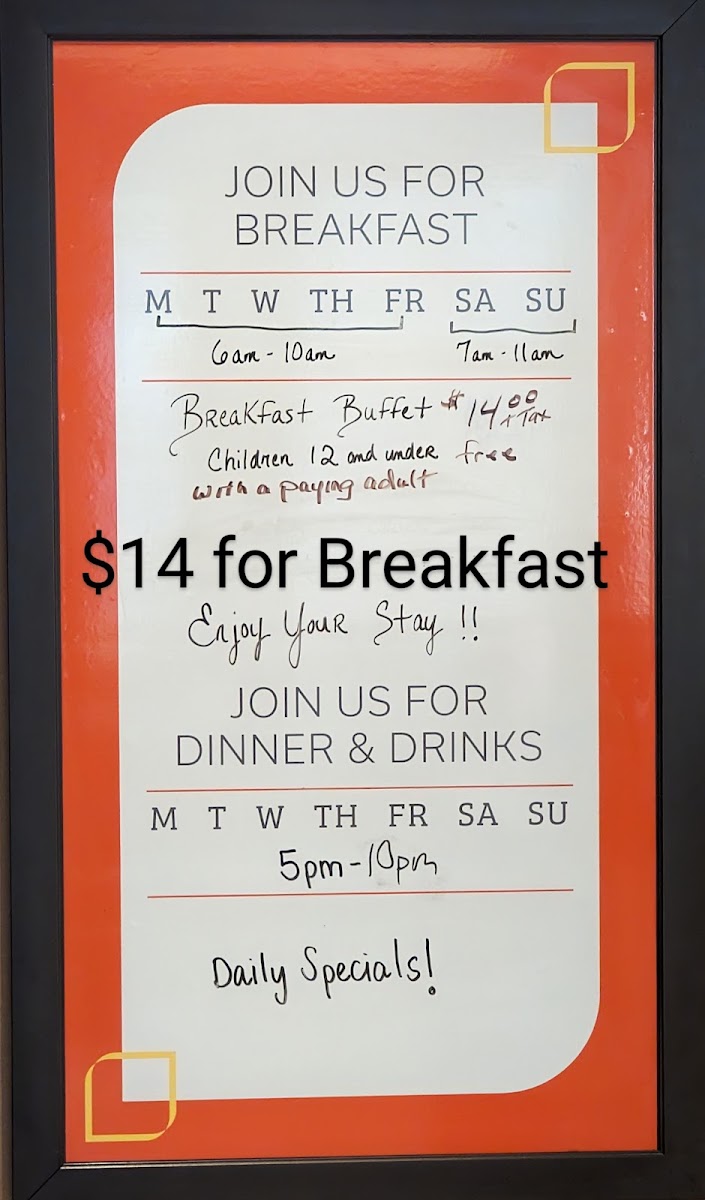 JOIN US FOR
BREAKFAST
M T W TH FR SA SU
6am - 10am 7am - 11am
Breakfast Buffet $14.00 + Tax
Children 12 and under free
with a paying adult
$14 for Breakfast
Enjoy Your Stay !!
JOIN US FOR
DINNER & DRINKS
M T W TH FR SA SU
5pm - 10pm
Daily Specials!